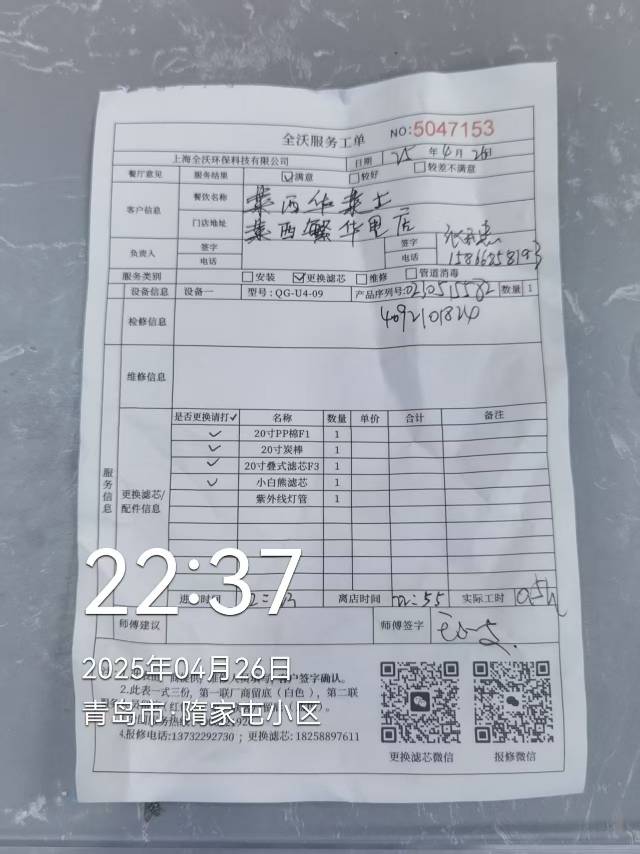 全沃服务工单 NO:5047153
上海全沃环保科技有限公司 日期 25 年 4 月 26
餐厅意见 服务结果 ☑满意 □较好 □较差不满意
客户信息 餐饮名称 莱西华莱士
门店地址 莱西繁华电店
负责人 签字 签字
电话 电话 15866258193
服务类别 □安装 ☑更换滤芯 □维修 □管道消毒
设备信息 设备一 型号:QG-U4-09 产品序列号:0210515582 数量 1
4092101824
检修信息
维修信息
服务信息
更换滤芯/配件信息
是否更换请打✓ 名称 数量 单价 合计 备注
✓ 20寸PP棉F1 1
✓ 20寸炭棒 1
✓ 20寸叠式滤芯F3 1
✓ 小白熊滤芯 1
紫外线灯管 1
22:37
时间 离店时间 22:55 实际工时 0.5h
师傅建议 师傅签字
2025年04月26日
客户签字确认。
2.此表一式三份,第一联厂商留底(白色),第二联
青岛市·隋家屯小区
4.报修电话:13732292730;更换滤芯:18258897611
更换滤芯微信 报修微信